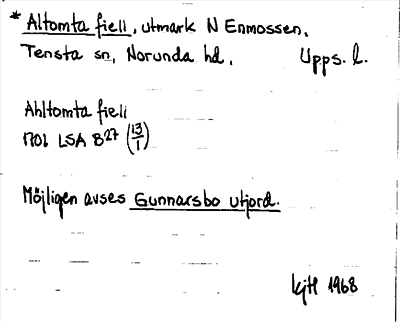 * Altomta fiell, utmark N Enmossen,
Tensta sn, Norunda hd, Upps. l.
Ahltomta fiell
1701 LSA B27 (13/1)
Möjligen avses Gunnarsbo utjord.
kjH 1968